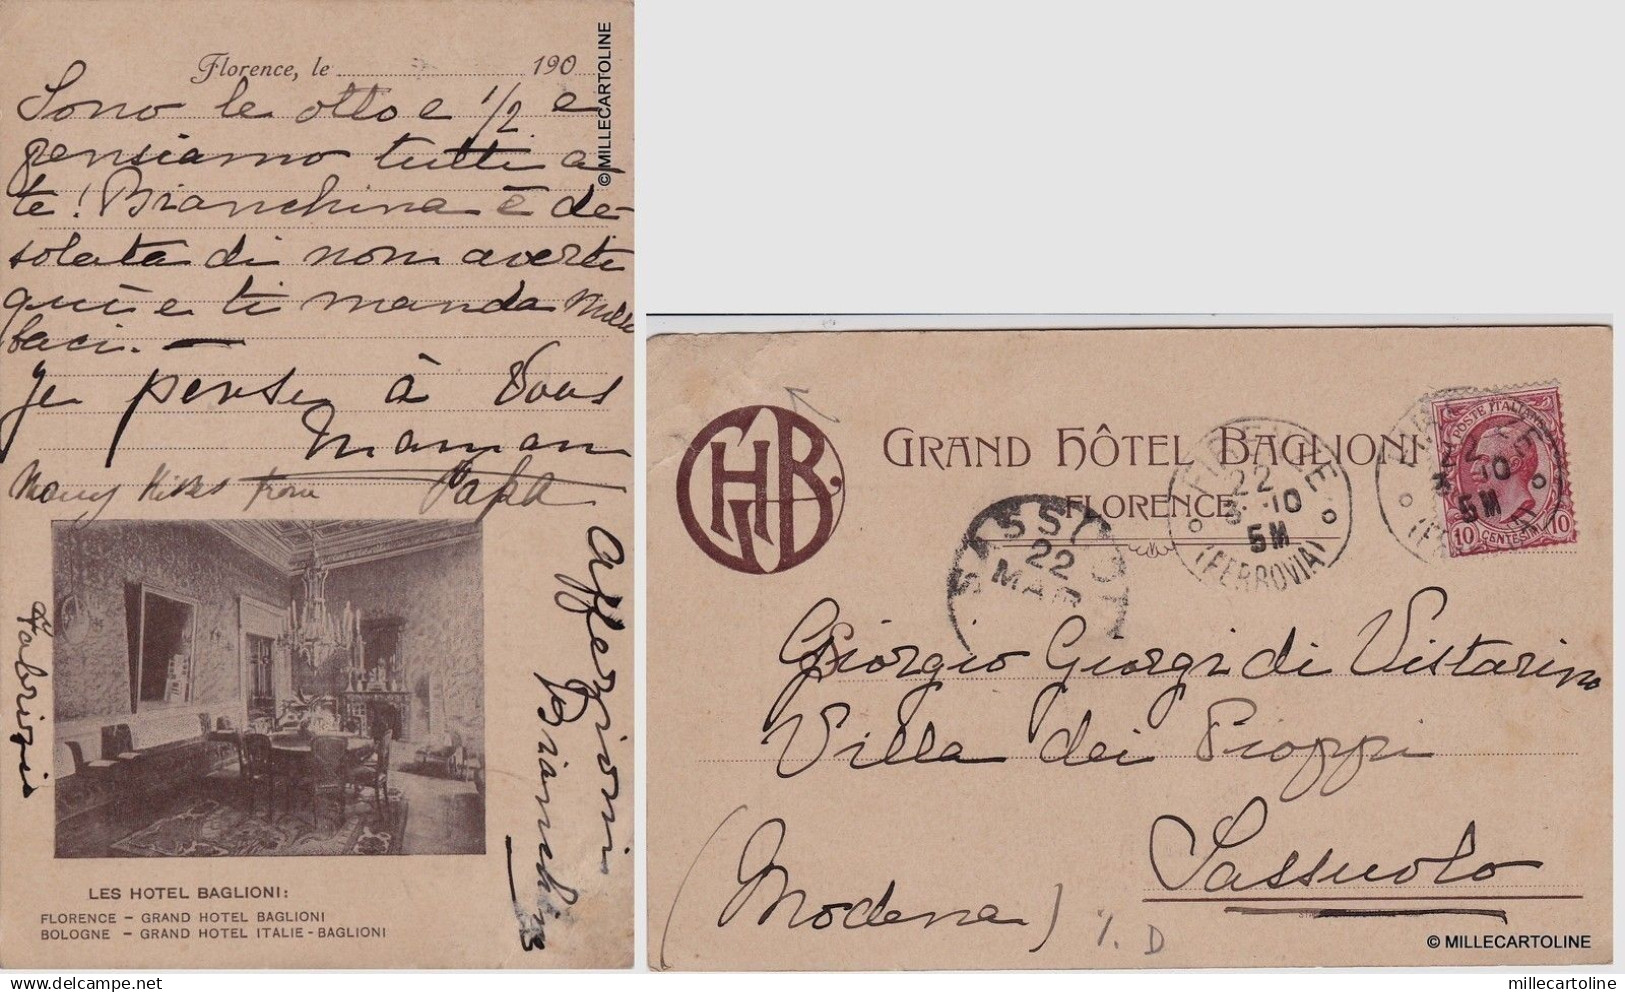 Florence, le 190
Sono le otto e 1/2 e
pensiamo tutti a
te! Bianchina è de-
solata di non averti
qui e ti manda mille
baci. —
Je pense à Vous
Maman
Many Kisses from Papa
Affezioni
Bianchina
Fabrizio
LES HOTEL BAGLIONI:
FLORENCE – GRAND HOTEL BAGLIONI
BOLOGNE – GRAND HOTEL ITALIE - BAGLIONI
© MILLECARTOLINE
GHB
GRAND HÔTEL BAGLIONI
FLORENCE
FIRENZE
22
3 - 10
5M
(FERROVIA)
SASSUOLO
22
MAR
POSTE ITALIANE
10 CENTESIMI 10
Giorgio Giorgi di Vistarino
Villa dei Pioppi
Sassuolo
(Modena)
© MILLECARTOLINE
millecartoline
millecartoline